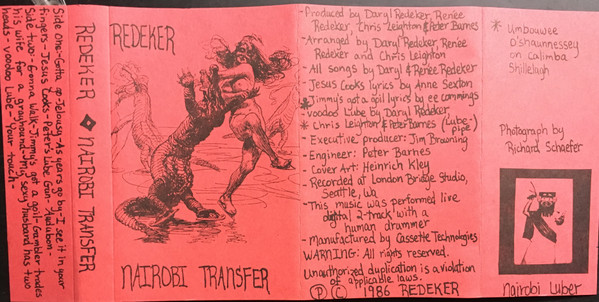 Side One-Gotta go-Jelousy-As years go by-I see it in your
fingers-Jesus Cooks-Peter's Lube Gun-Audubon-
Side two-Gronna Walk-Jimmy's got a goil-Gambler trades
his wife for a grayhound-Jmlg sexy husband has two
heads-Voodoo Lube-Your touch-
REDEKER ◆ NAIROBI TRANSFER
REDEKER
NAIROBI TRANSFER
-Produced by Daryl Redeker, Renée
Redeker, Chris Leighton & Peter Barnes
-Arranged by Daryl Redeker, Renée
Redeker and Chris Leighton
-All songs by Daryl & Renée Redeker
Jesus Cooks lyrics by Anne Sexton
Jimmy's got a goil lyrics by ee cummings
-Voodoo Lube by Daryl Redeker,
* Chris Leighton & Peter Barnes (Lube-pipe)
-Executive producer: Jim Browning
-Engineer: Peter Barnes
-Cover Art: Heinrich Kley
-Recorded at London Bridge Studio,
Seattle, Wa
-This music was performed live
digital 2-track with a
human drummer
-Manufactured by Cassette Technologies
WARNING: All rights reserved.
Unauthorized duplication is a violation
of applicable laws.
Ⓟ © 1986 REDEKER
* Umbouwee
O'shaunnessey
on calimba
Shillelagh
Photograph by
Richard Schaefer
Nairobi Luber